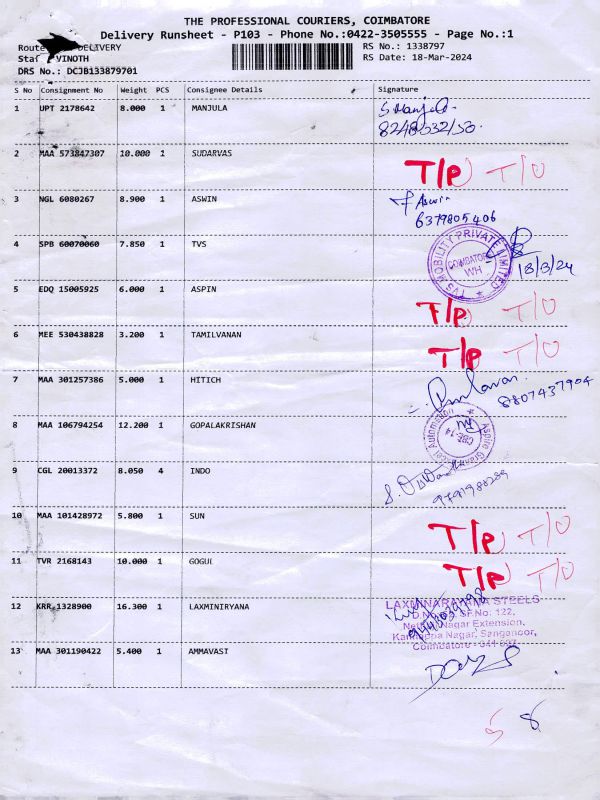 THE PROFESSIONAL COURIERS, COIMBATORE
Delivery Runsheet - P103 - Phone No.:0422-3505555 - Page No.:1
Route DELIVERY RS No.: 1338797
VINOTH RS Date: 18-Mar-2024
DRS No.: DCJB133879701
S No Consignment No Weight PCS Consignee Details Signature
1 UPT 2178642 8.000 1 MANJULA
2 MAA 573847307 10.000 1 SUDARVAS T/P T/O
3 NGL 6080267 8.900 1 ASWIN Aswin
6379805406
4 SPB 60070060 7.850 1 TVS TVS MOBILITY PRIVATE LIMITED
COIMBATORE
WH
18/3/24
5 EDQ 15005925 6.000 1 ASPIN T/P T/O
6 MEE 530438828 3.200 1 TAMILVANAN T/P T/O
7 MAA 301257386 5.000 1 HITICH
8807437904
8 MAA 106794254 12.200 1 GOPALAKRISHAN
CBE-14
9 CGL 20013372 8.050 4 INDO
10 MAA 101428972 5.800 1 SUN T/P T/O
11 TVR 2168143 10.000 1 GOGUL T/P T/O
12 KRR 1328900 16.300 1 LAXMINIRYANA LAXMINARAYANA STEELS
S.F.No: 122,
Nagar Extension,
Nagar, Sanganoor,
Coimbatore
13 MAA 301190422 5.400 1 AMMAVAST
5 8